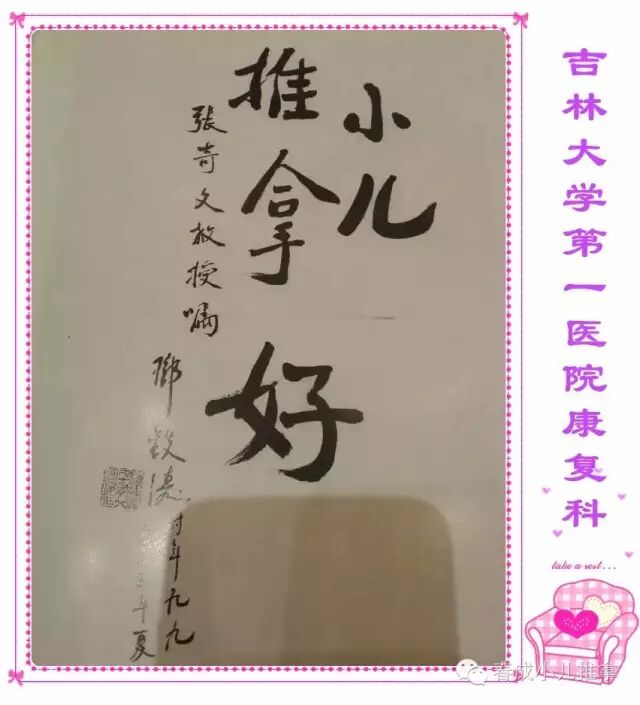 小儿
推拿好
張奇文教授嘱
鄧鐵濤 时年九九
年夏
吉林大学第一医院康复科
take a rest...
春成小儿推拿